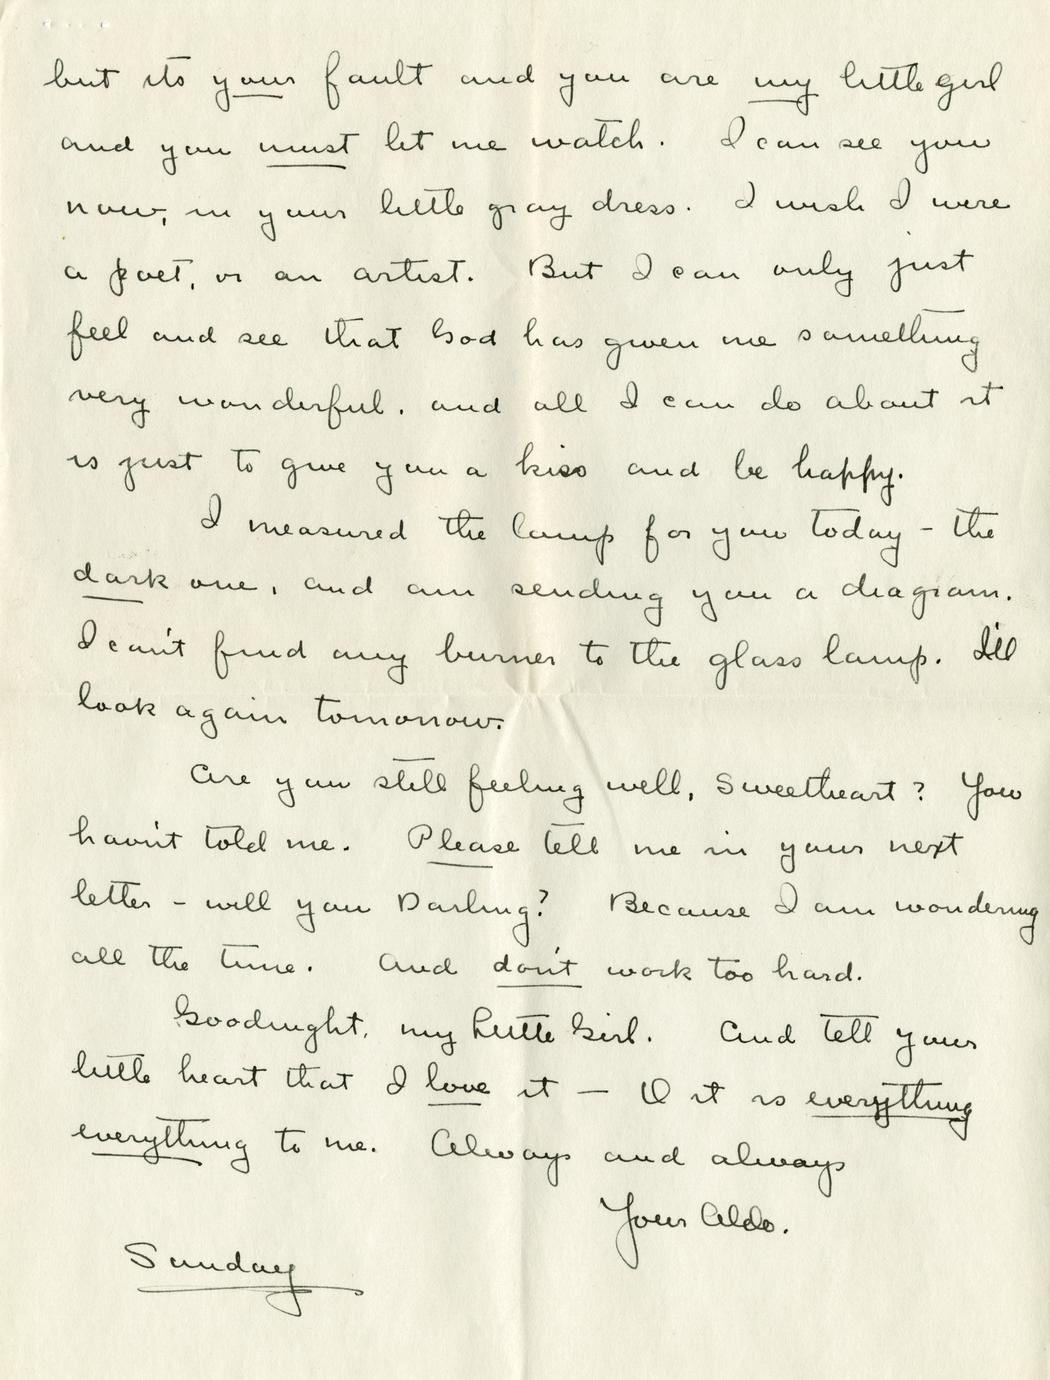 but its your fault and you are my little girl
and you must let me watch. I can see you
now, in your little gray dress. I wish I were
a poet, or an artist. But I can only just
feel and see that God has given me something
very wonderful, and all I can do about it
is just to give you a kiss and be happy.
I measured the lamp for you today - the
dark one, and am sending you a diagram.
I can't find any burner to the glass lamp. I'll
look again tomorrow.
Are you still feeling well, Sweetheart? You
havn't told me. Please tell me in your next
letter - will you Darling? Because I am wondering
all the time. And don't work too hard.
Goodnight, my Little Girl. And tell your
little heart that I love it — O it is everything
everything to me. Always and always
Your Aldo.
Sunday